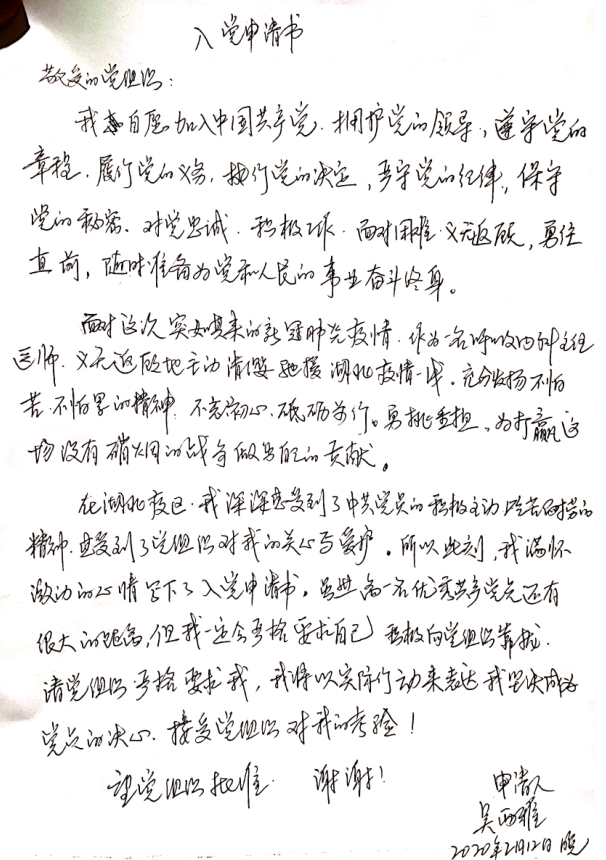 入党申请书
敬爱的党组织：
我自愿加入中国共产党、拥护党的领导，遵守党的
章程、履行党的义务、执行党的决定，严守党的纪律，保守
党的秘密、对党忠诚、积极工作、面对困难、义无返顾，勇往
直前，随时准备为党和人民的事业奋斗终身。
面对这次突如其来的新冠肺炎疫情，作为一名呼吸内科主任
医师、义无返顾地主动请缨驰援湖北疫情一线。充分发扬不怕
苦、不怕累的精神、不忘初心、砥砺前行。勇挑重担，为打赢这
场没有硝烟的战争做出自己的贡献。
在湖北疫区、我深深感受到了中共党员的积极主动吃苦耐劳的
精神、感受到了党组织对我的关心与爱护。所以此刻，我满怀
激动的心情写下了入党申请书。虽然离一名优秀共产党员还有
很大的距离，但我一定会严格要求自己 积极向党组织靠拢、
请党组织严格要求我，我将以实际行动来表达我坚决成为
党员的决心、接受党组织对我的考验！
望党组织批准、 谢谢！
申请人
吴雅
2020年2月12日 晚